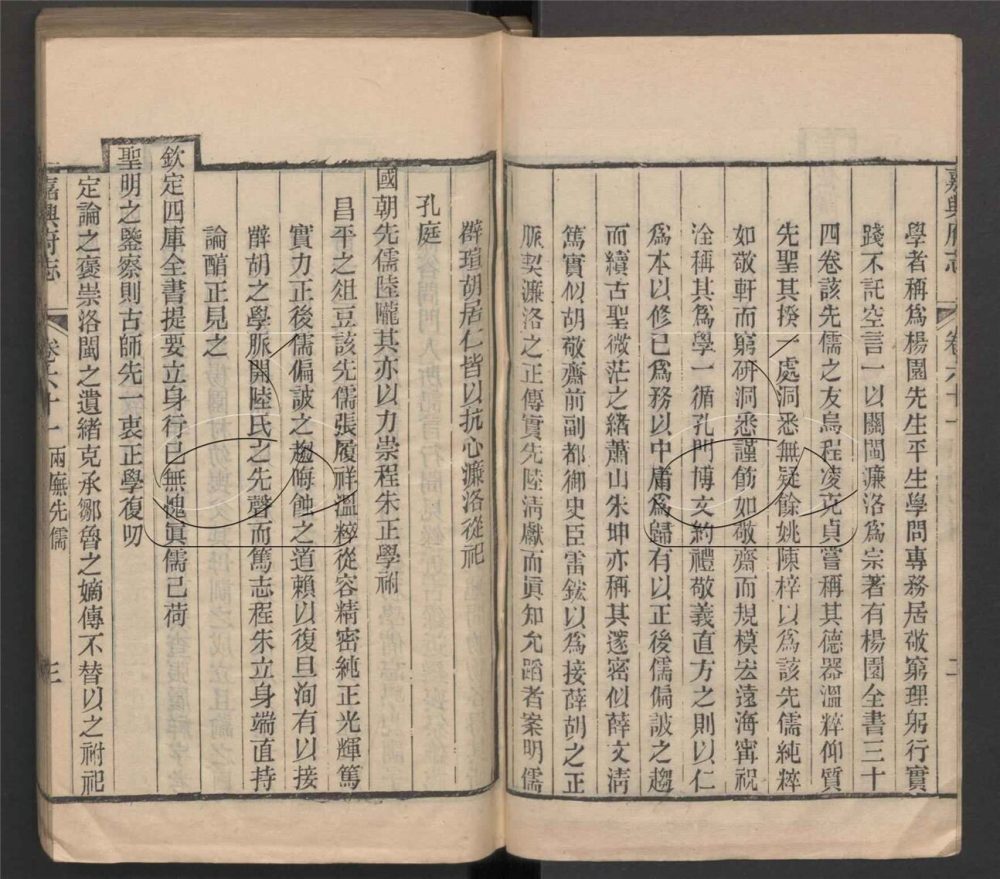 嘉興府志
卷六十一
二
學者稱爲楊園先生平生學問專務居敬窮理躬行實
踐不託空言一以關閩濂洛爲宗著有楊園全書三十
四卷該先儒之友烏程凌克貞嘗稱其德器溫粹仰質
先聖其揆一處洞悉無疑餘姚陳梓以爲該先儒純粹
如敬軒而窮研洞悉謹篤如敬齋而規模宏遠海甯祝
洤稱其爲學一循孔門博文約禮敬義直方之則以仁
爲本以修已爲務以中庸爲歸有以正後儒偏詖之趨
而續古聖微茫之緒蕭山朱坤亦稱其邃密似薛文淸
篤實似胡敬齋前副都御史臣雷鋐以爲接薛胡之正
脈契濂洛之正傳實先陸淸獻而眞知允蹈者案明儒
薛瑄胡居仁皆以抗心濂洛從祀
孔庭
國朝先儒陸隴其亦以力崇程朱正學祔
昌平之俎豆該先儒張履祥溫粹從容精密純正光輝篤
實力正後儒偏詖之趨晦蝕之道賴以復旦洵有以接
薛胡之學脈開陸氏之先聲而篤志程朱立身端直持
論醇正見之
欽定四庫全書提要立身行已無愧眞儒已荷
聖明之鑒察則古師先一衷正學復叨
定論之褒崇洛閩之遺緒克承鄒魯之嫡傳不替以之祔祀
嘉興府志
卷六十一
兩廡先儒
三